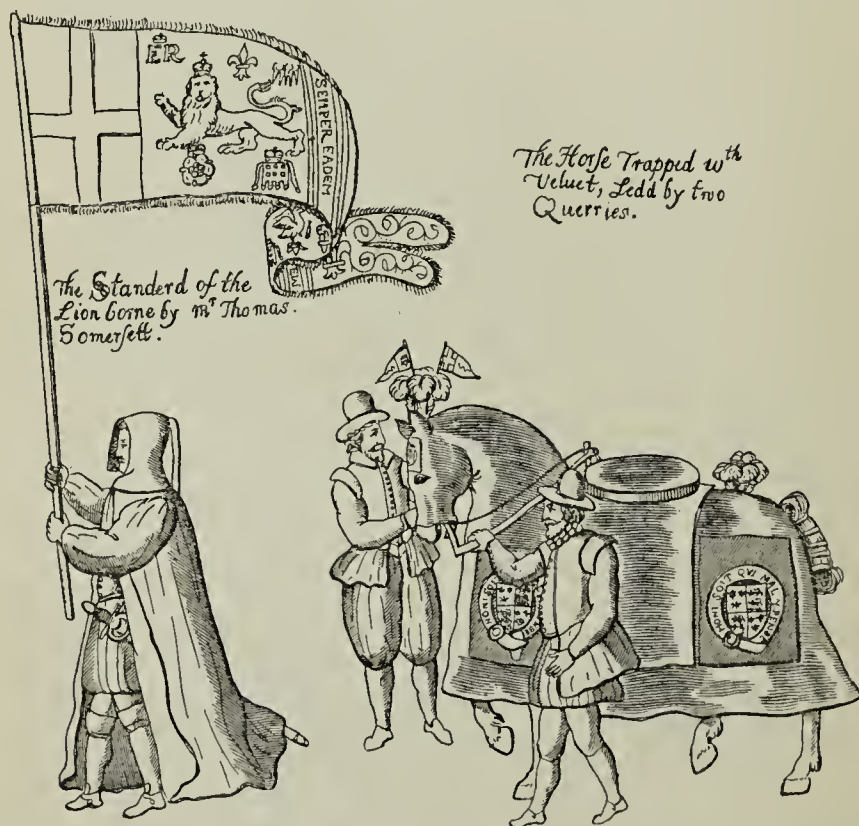 ER
SEMPER EADEM
The Horſe Trapped wth
Veluet, Ledd by two
Querries.
The Standerd of the
Lion borne by mr Thomas.
Somerſett.
HONI SOIT QVI MAL Y PENSE